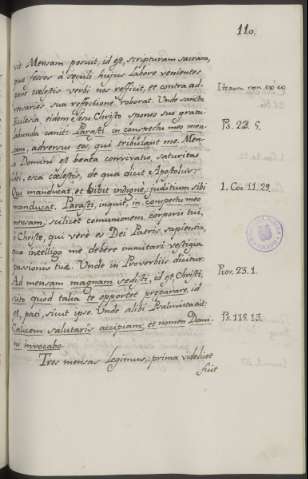 110.
vit Mensam posuit, id est, scripturam sacram,
quæ seres à sæculi hujus labore venientes
pane cœlestis verbi nos reficit, et contra ad-
versarios sua refectione roborat. Unde sancta
Ecclesia eidem de Christo sponso suo gratu-
labunda canit: Parasti in conspectu meo men-
sam, adversus eos, qui tribulant me. Men-
sa Domini est beata convivatio, saturitas
esca cœlestis, de qua dicit Apostolus:
Qui manducat, et bibit indigne, judicium sibi
manducat. Parasti, inquit, in conspectu meo
mensam, scilicet communionem corporis tui,
Christe, qui vere es Dei Patris sapientia,
me debere imitari vestigia
passionis tuæ. Unde in Proverbiis dicitur:
Ad mensam magnam sedisti, id est, Christi,
scito quod talia te oportet præparare, id
est, pati, sicut ipse. Unde alibi Psalmista ait:
Calicem salutaris accipiam, et nomen Domi-
ni invocabo.
Tres mensas legimus: prima videlicet
fuit
Ps. 22. 5.
1. Cor. 11. 29.
Prov. 23. 1.
Ps. 115. 13.